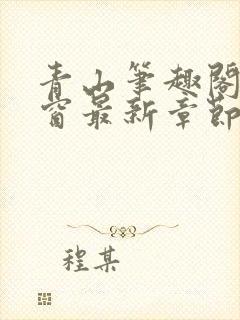 青山筆趣閣
窗最新章節
程某